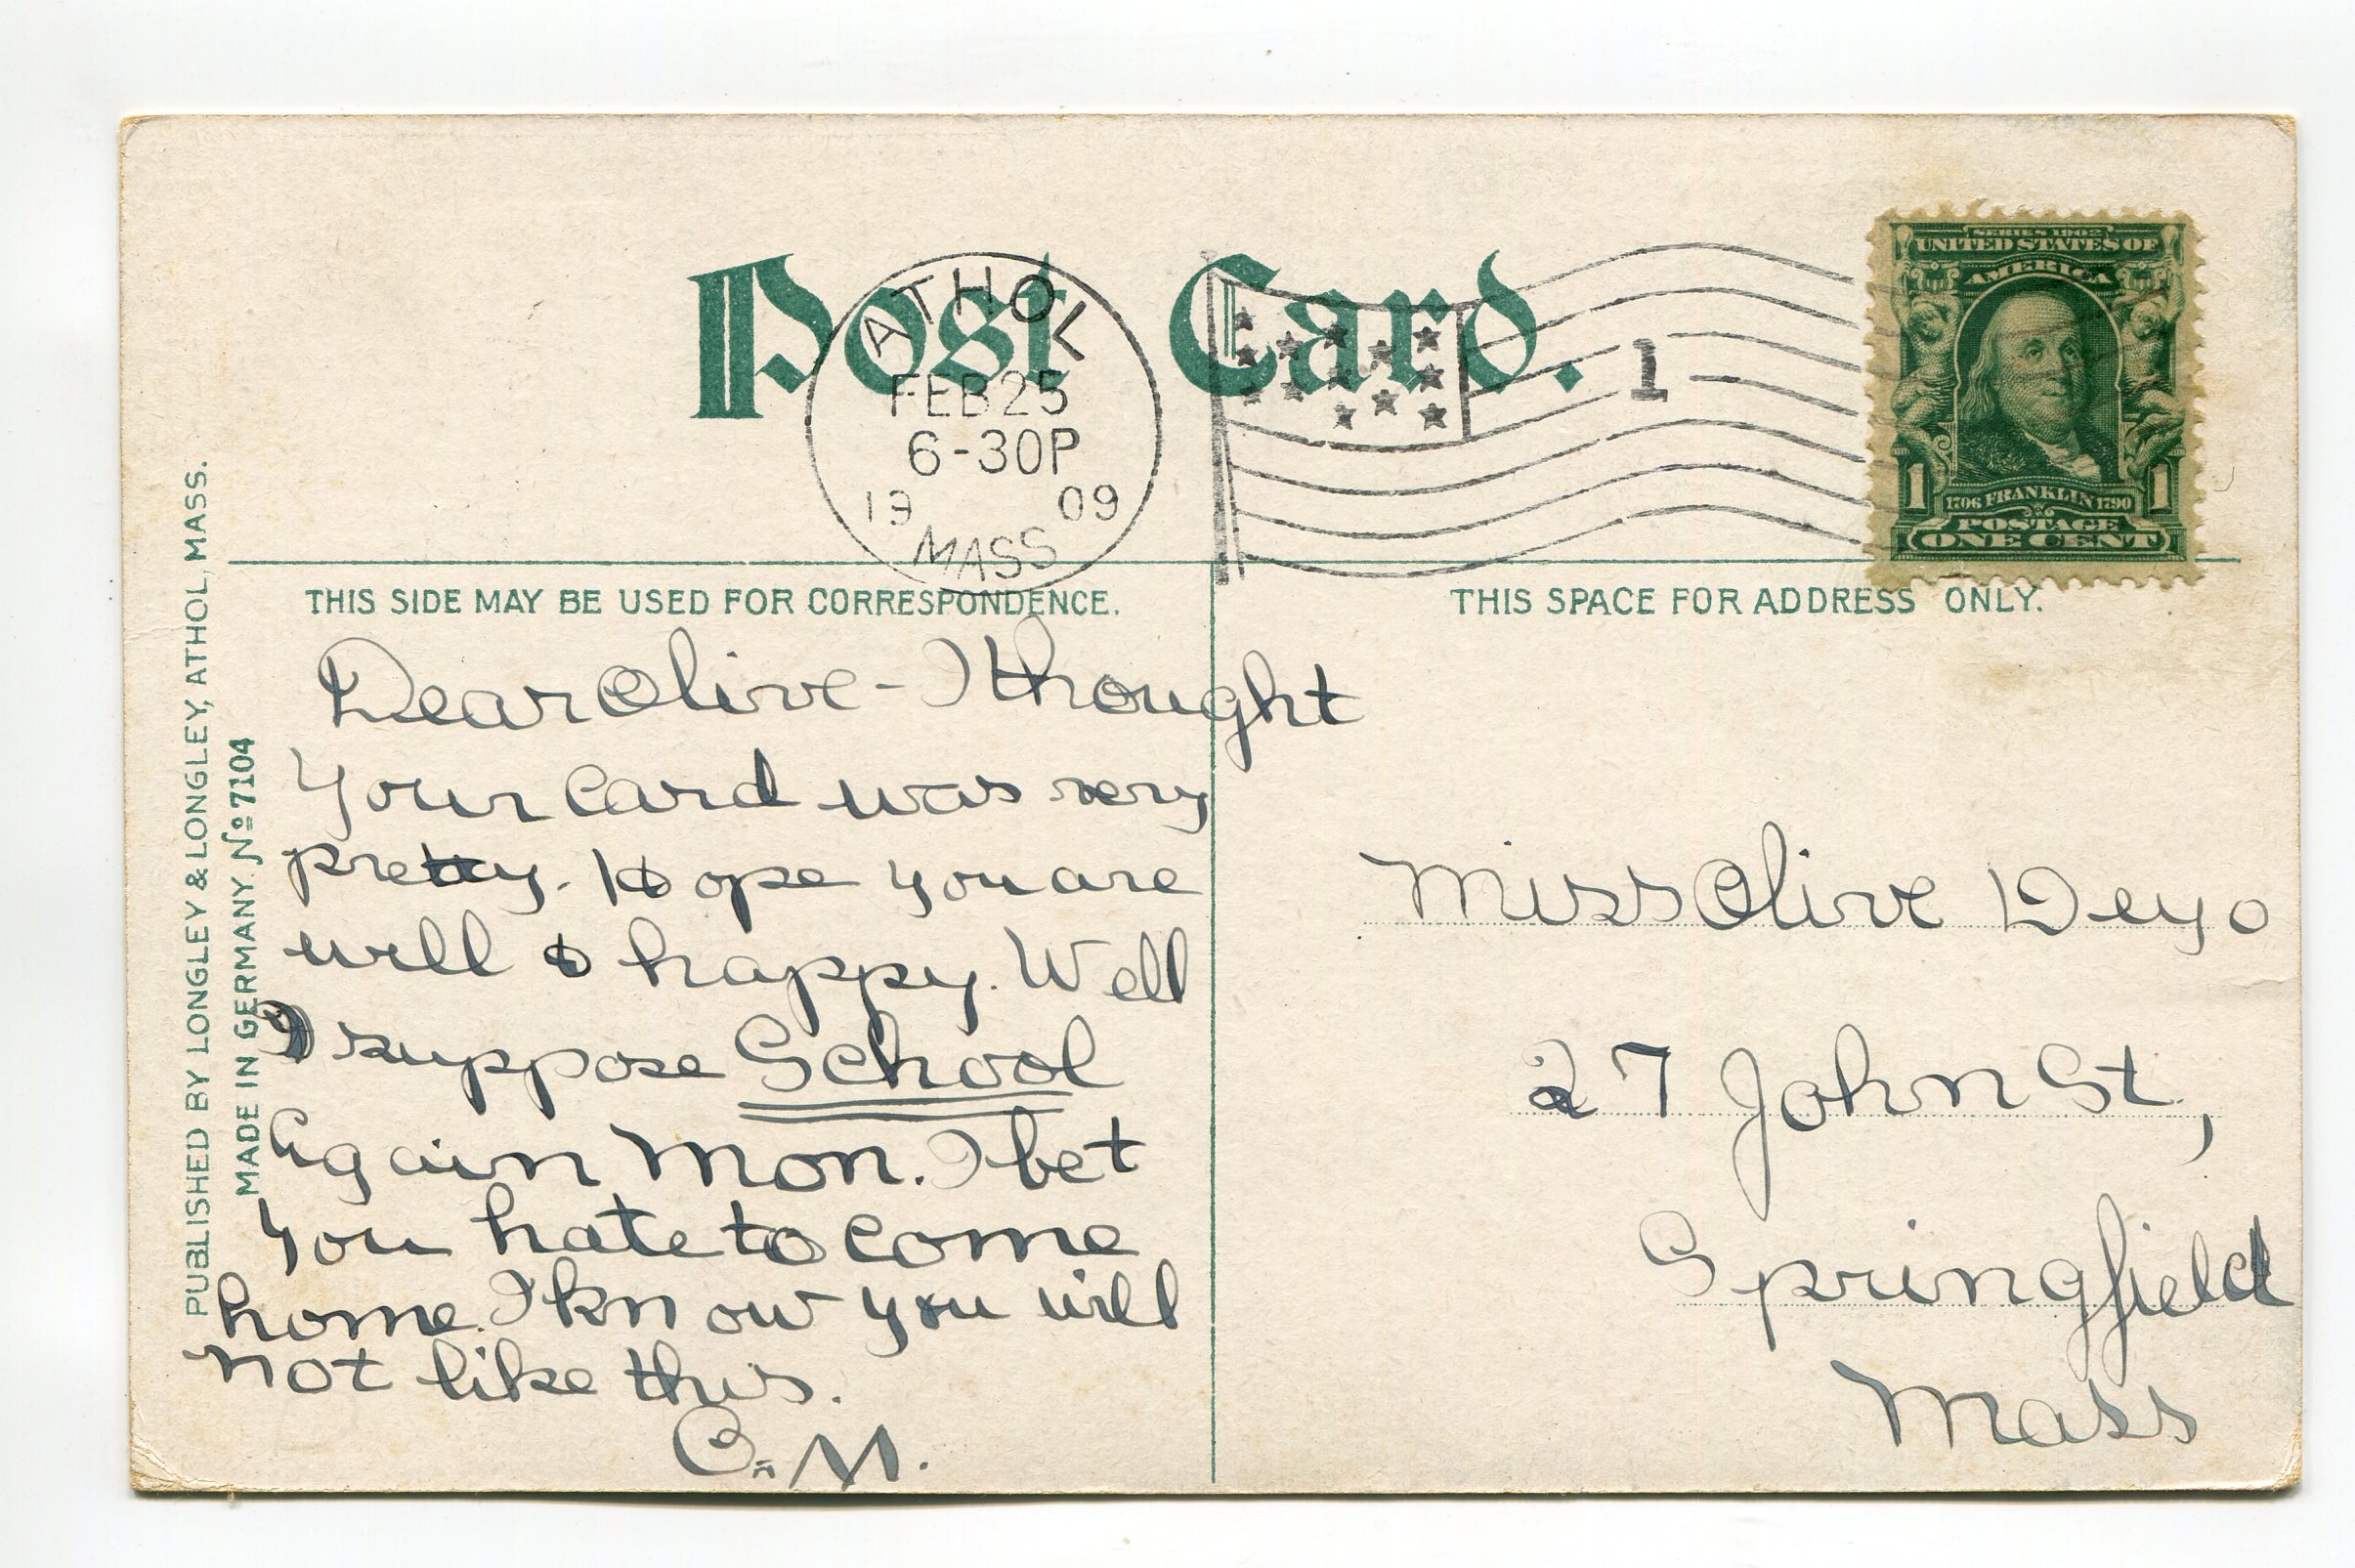 Post Card.
ATHOL
FEB 25
6-30P
19 09
MASS
1
SERIES 1902
UNITED STATES OF
AMERICA
1 1706 FRANKLIN 1790 1
POSTAGE
ONE CENT
THIS SIDE MAY BE USED FOR CORRESPONDENCE.
THIS SPACE FOR ADDRESS ONLY.
PUBLISHED BY LONGLEY & LONGLEY, ATHOL, MASS.
MADE IN GERMANY. No 7104
Dear Olive - I thought
your card was very
pretty. Hope you are
well & happy. Well
I suppose School
Again Mon. I bet
you hate to come
home. I know you will
not like this.
C. M.
Miss Olive Deyo
27 John St,
Springfield
Mass